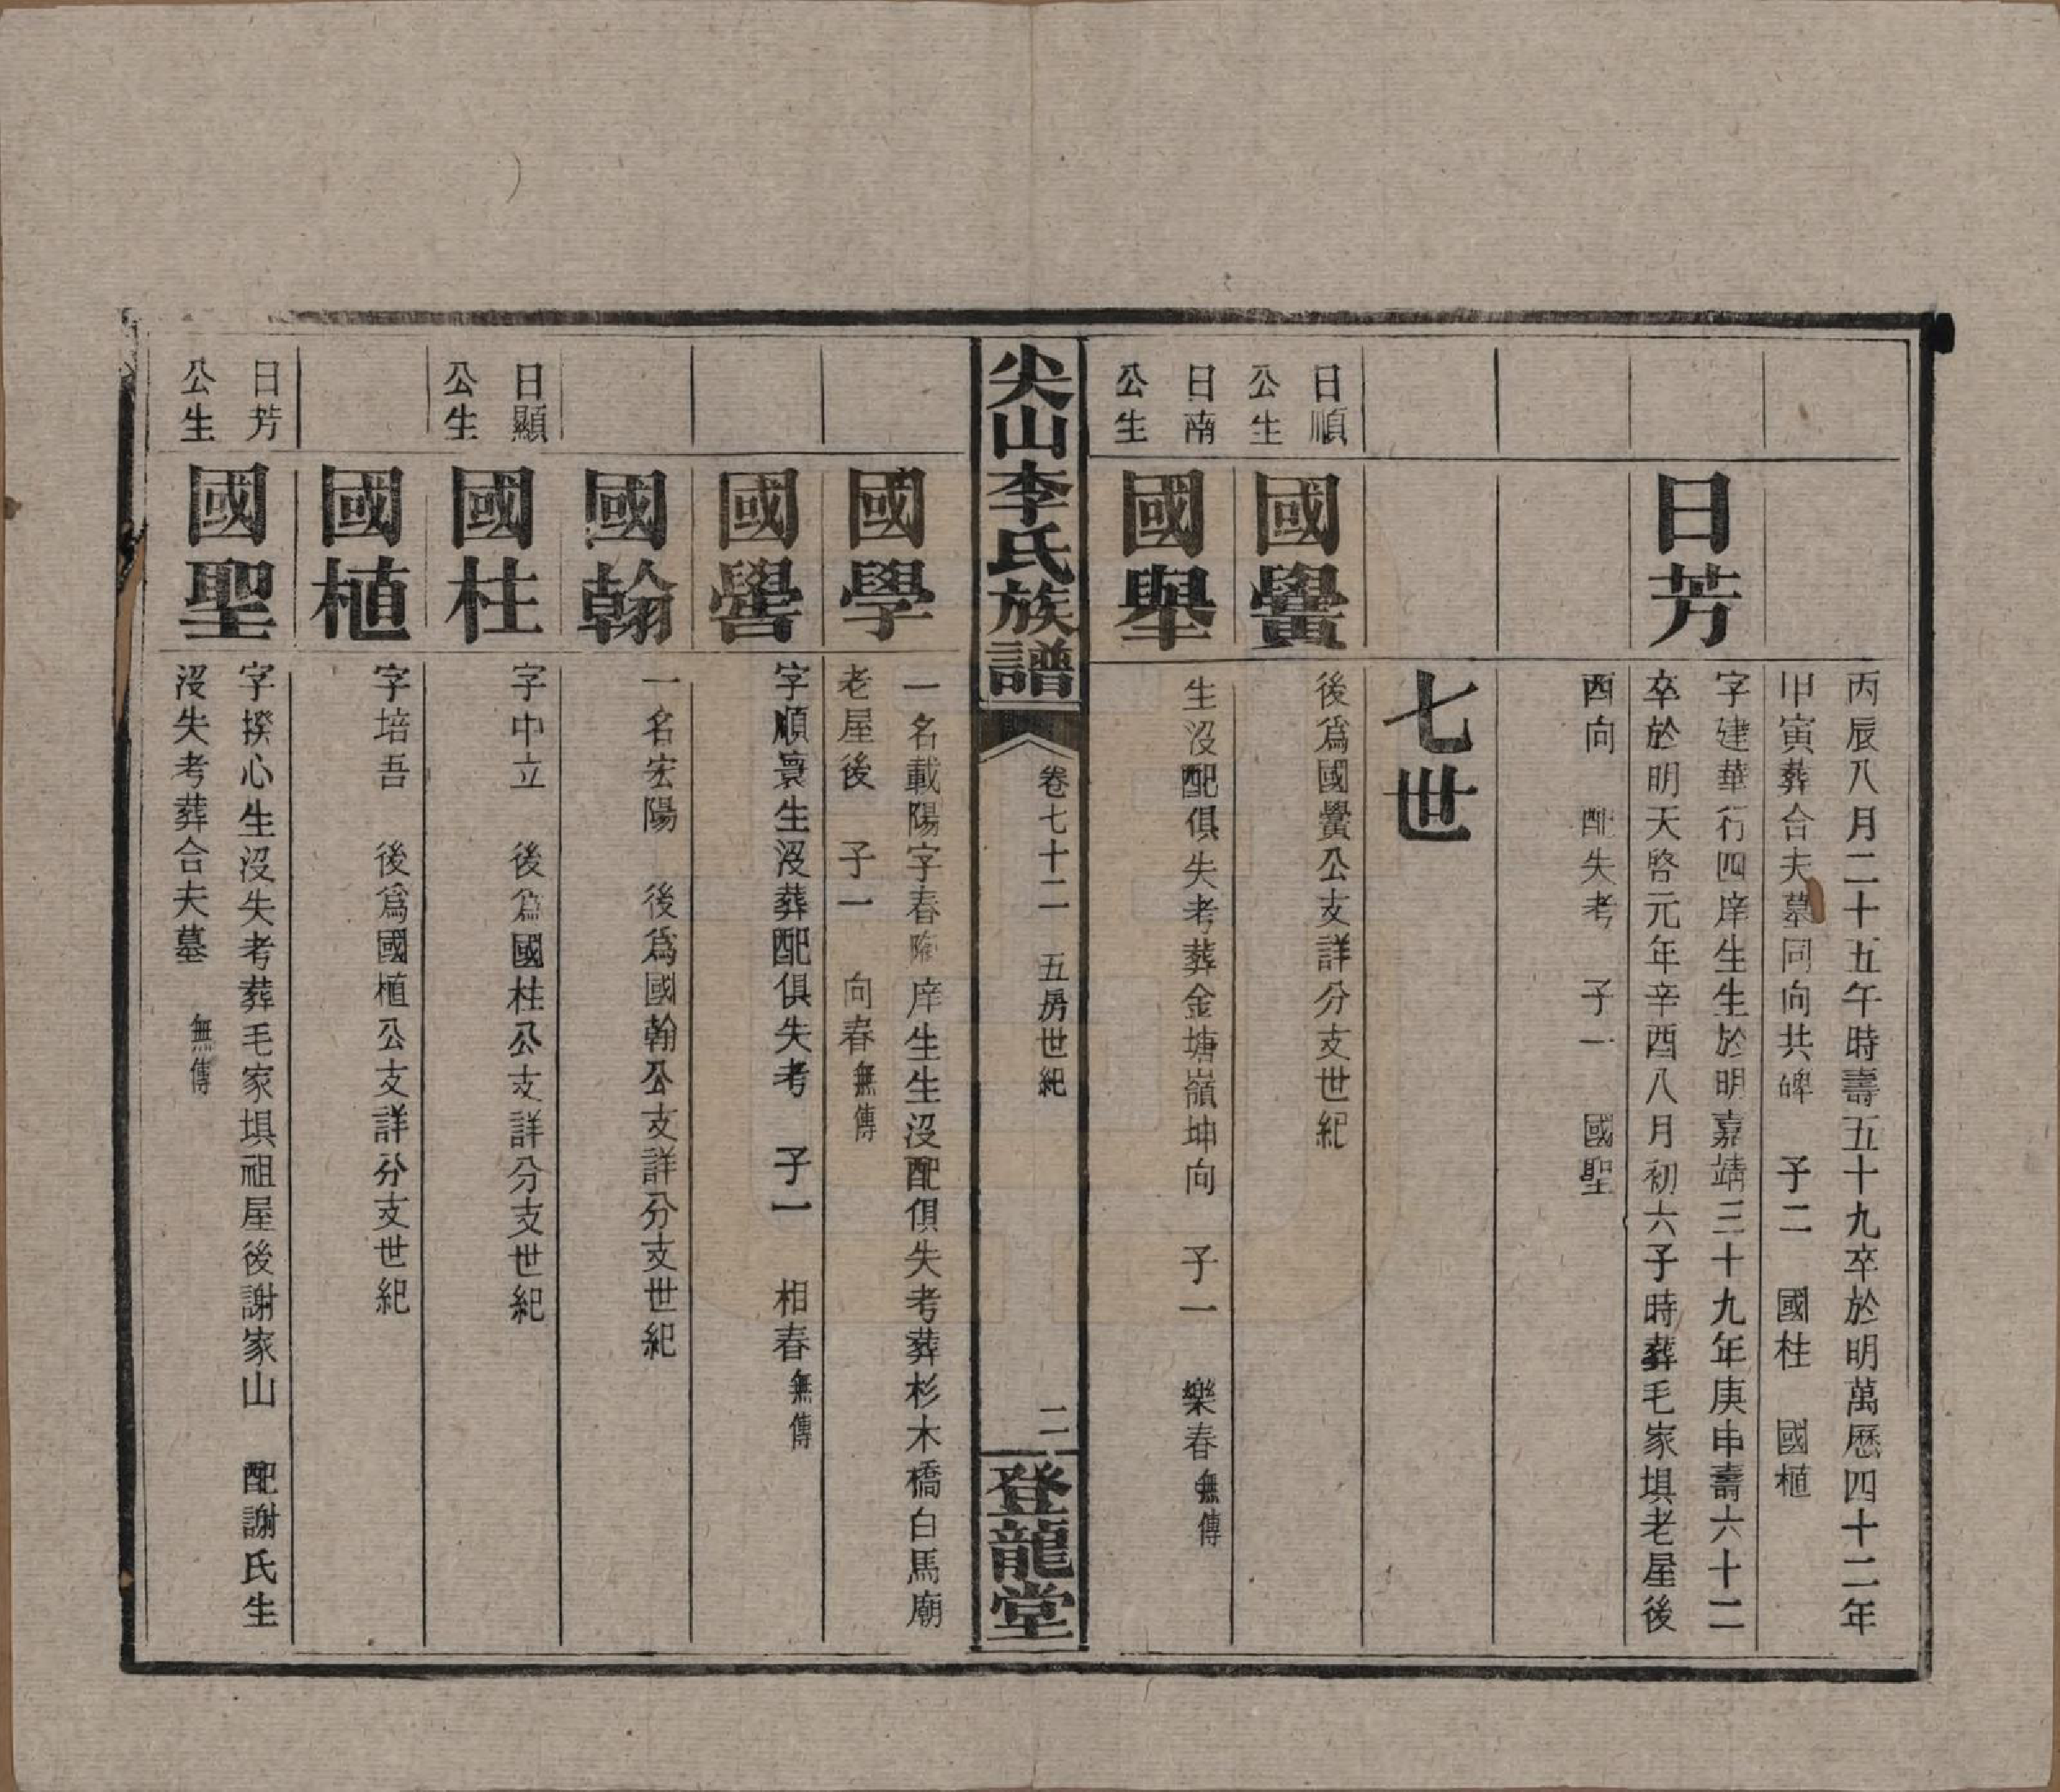 丙辰八月二十五午時壽五十九卒於明萬歷四十二年
甲寅葬合夫墓同向共碑　子二　國柱　國植
日芳
字建華行四庠生生於明嘉靖三十九年庚申壽六十二
卒於明天啓元年辛酉八月初六子時葬毛家埧老屋後
酉向　配失考　子一　國聖
七世
日順
公生
國黌
後爲國黌公支詳分支世紀
日南
公生
國舉
生沒配俱失考葬金塘嶺坤向　子一　樂春無傳
尖山李氏族譜
卷七十二　五房世紀
二
登龍堂
國學
一名載陽字春陶庠生生沒配俱失考葬杉木橋白馬廟
老屋後　子一　向春無傳
國嚳
字順寰生沒葬配俱失考　子一　相春無傳
國翰
一名宏陽　後爲國翰公支詳分支世紀
日顯
公生
國柱
字中立　後爲國柱公支詳分支世紀
國植
字培吾　後爲國植公支詳分支世紀
日芳
公生
國聖
字揆心生沒失考葬毛家埧祖屋後謝家山　配謝氏生
沒失考葬合夫墓　無傳